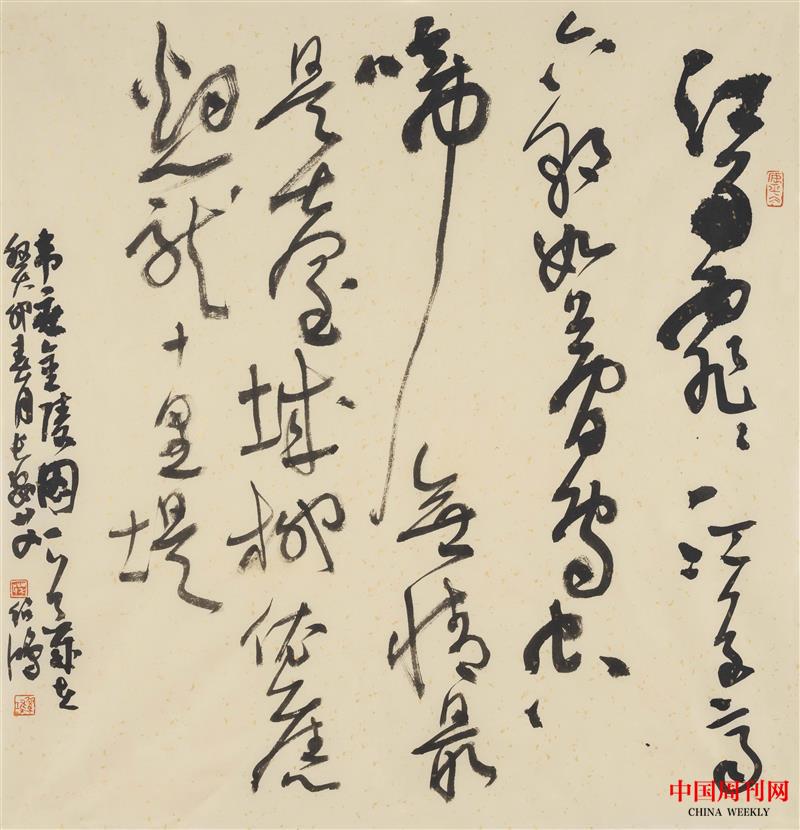 江雨霏〻江草齊
六朝如夢鳥空
啼無情最
是臺城柳依舊
煙籠十里堤
韋莊金陵圖一首歲在
癸卯春月
中国周刊网
CHINA WEEKLY